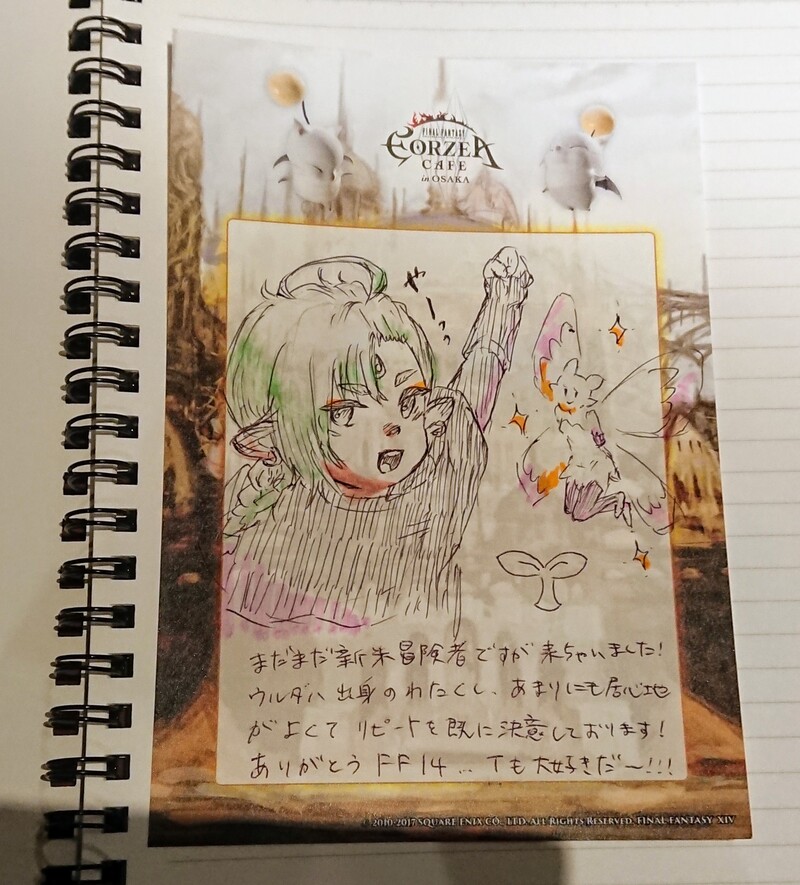 FINAL FANTASY
EORZEA
CAFE
in OSAKA
やーっっ
まだまだ新米冒険者ですが来ちゃいました!
ウルダハ出身のわたくし、あまりにも居心地
がよくてリピートを既に決意しております!
ありがとうFF14…Tも大好きだ〜!!!
©2010-2017 SQUARE ENIX CO., LTD. ALL RIGHTS RESERVED. FINAL FANTASY XIV